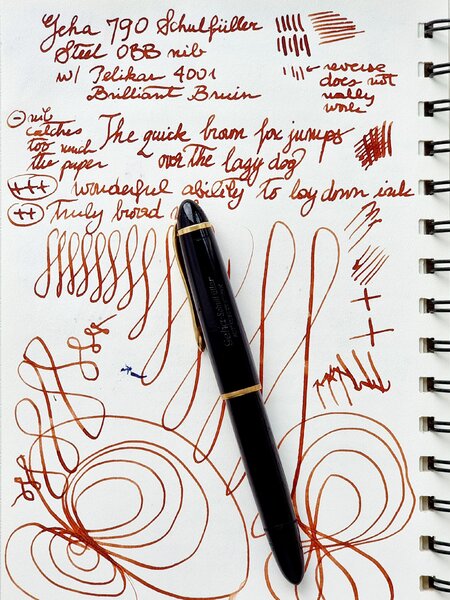 Geha 790 Schulfüller
Steel OBB nib
w/ Pelikan 4001
Brilliant Braun
reverse
does not
really
work
⊖ nib
catches
too much
the paper
The quick brown fox jumps
over the lazy dog
+++ wonderful ability to lay down ink
++ truly broad